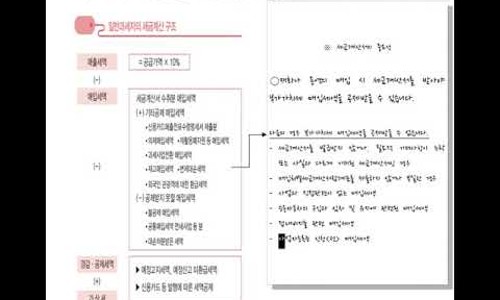 일반과세자의 세금계산 구조
매출세액
= 공급가액 × 10%
(-)
매입세액
세금계산서 수취분 매입세액
(+) 기타공제 매입세액
•신용카드매출전표수령명세서 제출분
•의제매입세액 •재활용폐자원 등 매입세액
•과세사업전환 매입세액
•재고매입세액 •변제대손세액
•외국인 관광객에 대한 환급세액
(-) 공제받지 못할 매입세액
•불공제 매입세액
•공통매입세액 면세사업 등 분
•대손처분받은 세액
(-)
경감·공제세액
▶예정고지세액, 예정신고 미환급세액
▶신용카드 등 발행에 따른 세액공제
(+)
가산세
※ 세금계산서의 중요성
매입 시 세금계산서를 받아야
부가가치세 매입세액을 공제받을 수 있습니다.
다음의 경우 부가가치세 매입세액을 공제받을 수 없습니다.
- 세금계산서를 발급받지 않거나, 필요적 기재사항이 누락
또는 사실과 다르게 기재된 세금계산서인 경우
- 매입처별세금계산서합계표를 제출하지 않거나 부실한 경우
- 사업과 직접관련이 없는 매입세액
- 접대비지출 관련 매입세액